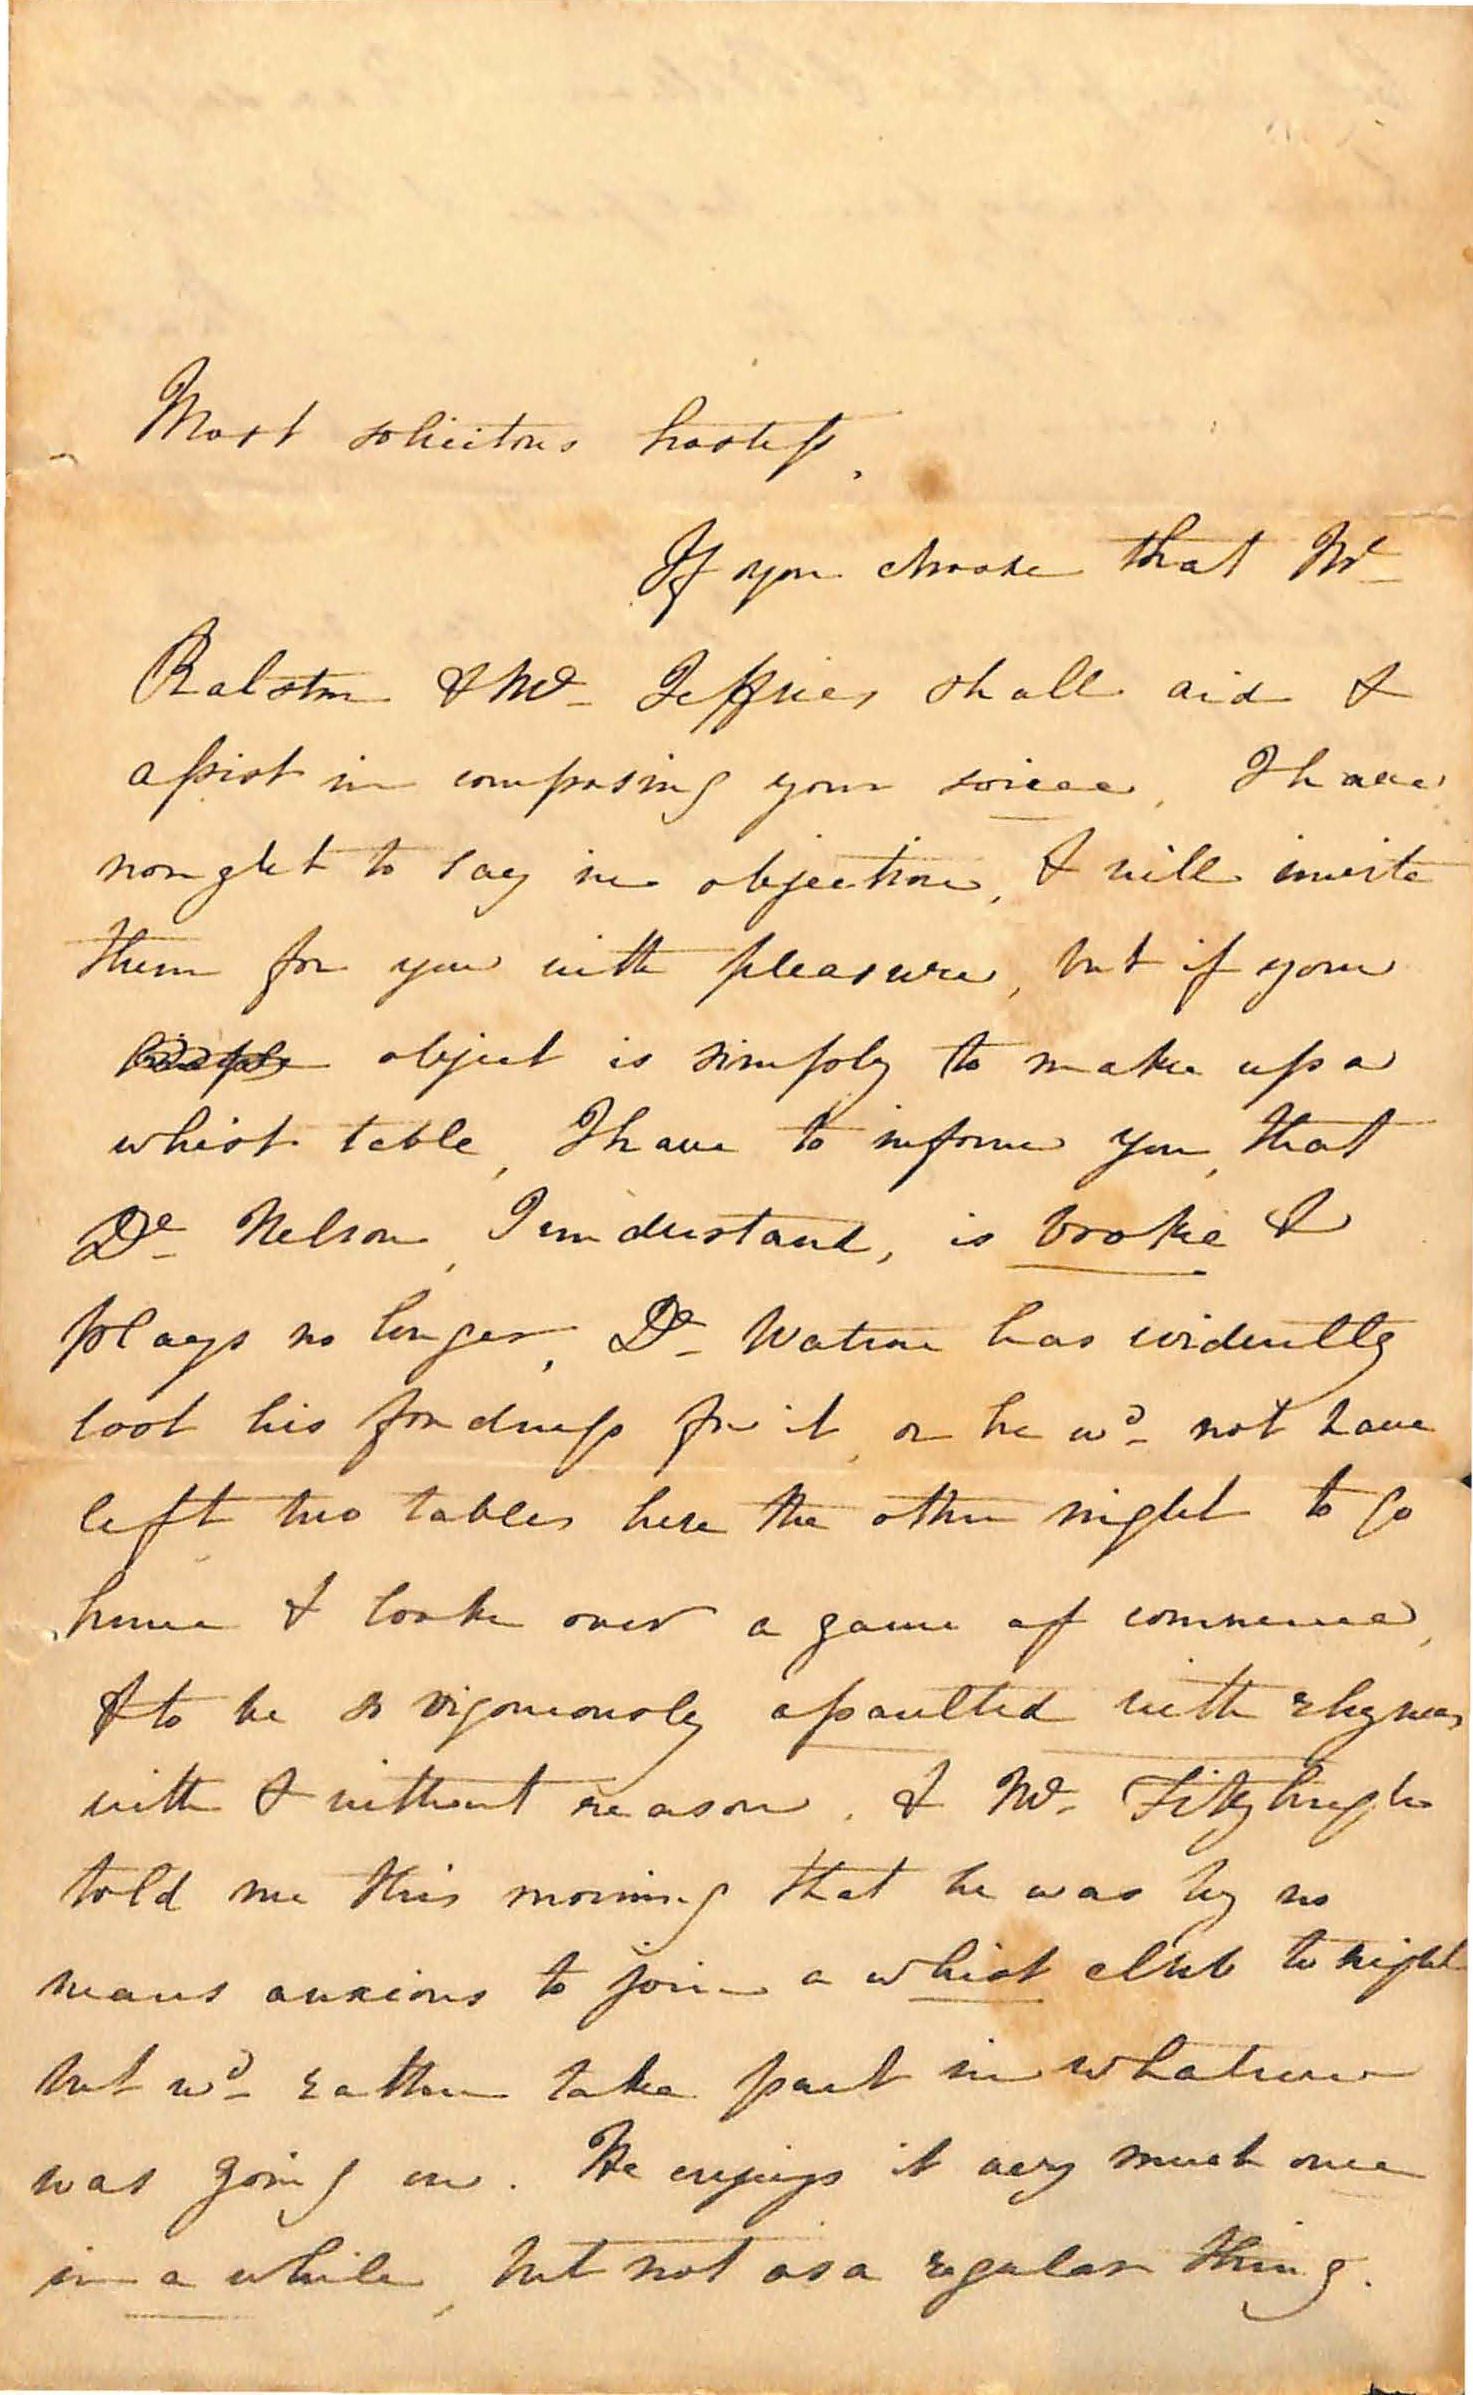 Most solicitous hostess,
If you choose that Mr
Ralston & Mr Jeffries shall aid &
assist in composing your soiree, I have
nought to say in objection, & will invite
them for you with pleasure, but if your
object is simply to make up a
whist table, I have to inform you, that
Dr Nelson, I understand, is broke &
plays no longer, Dr Watson has evidently
lost his fondness for it, or he wd not have
left two tables here the other night to go
home & look over a game of commerce,
& to be so vigourously assaulted with rhymes
with & without reason. & Mr Fitzhugh
told me this morning that he was by no
means anxious to join a whist club to night
but wd rather take part in whatever
was going on. He enjoys it very much once
in a while, but not as a regular thing.